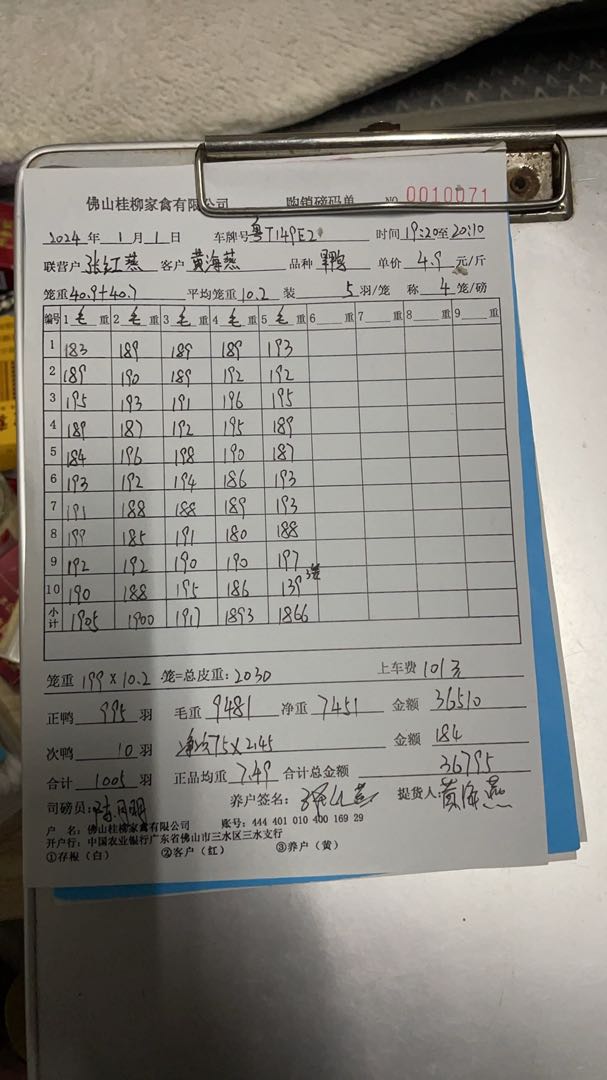 佛山桂柳家禽有限公司 购销磅码单 NO 0010071
2024年1月1日 车牌号粤T149E2 时间19:20至20:10
联营户张红燕 客户黄海燕 品种 单价4.9元/斤
笼重40.9+40.7 平均笼重10.2 装5羽/笼 称4笼/磅
编号 1毛重 2毛重 3毛重 4毛重 5毛重 6重 7重 8重 9重
1 183 189 189 189 193
2 189 190 189 192 192
3 195 193 191 196 195
4 189 187 192 195 189
5 184 196 198 190 187
6 193 192 194 186 193
7 191 188 188 189 193
8 199 185 191 180 188
9 192 192 190 190 197
10 190 188 195 186 139
小计 1905 1900 1917 1893 1866
笼重199×10.2笼=总皮重:2030 上车费101
正鸭995羽 毛重9481 净重7451 金额36510
次鸭10羽 75×2.45 金额184
合计1005羽 正品均重7.49 合计总金额36795
司磅员: 养户签名: 提货人:黄海燕
户 名:佛山桂柳家禽有限公司 账号:444 401 010 400 169 29
开户行:中国农业银行广东省佛山市三水区三水支行
①存根(白) ②客户(红) ③养户(黄)